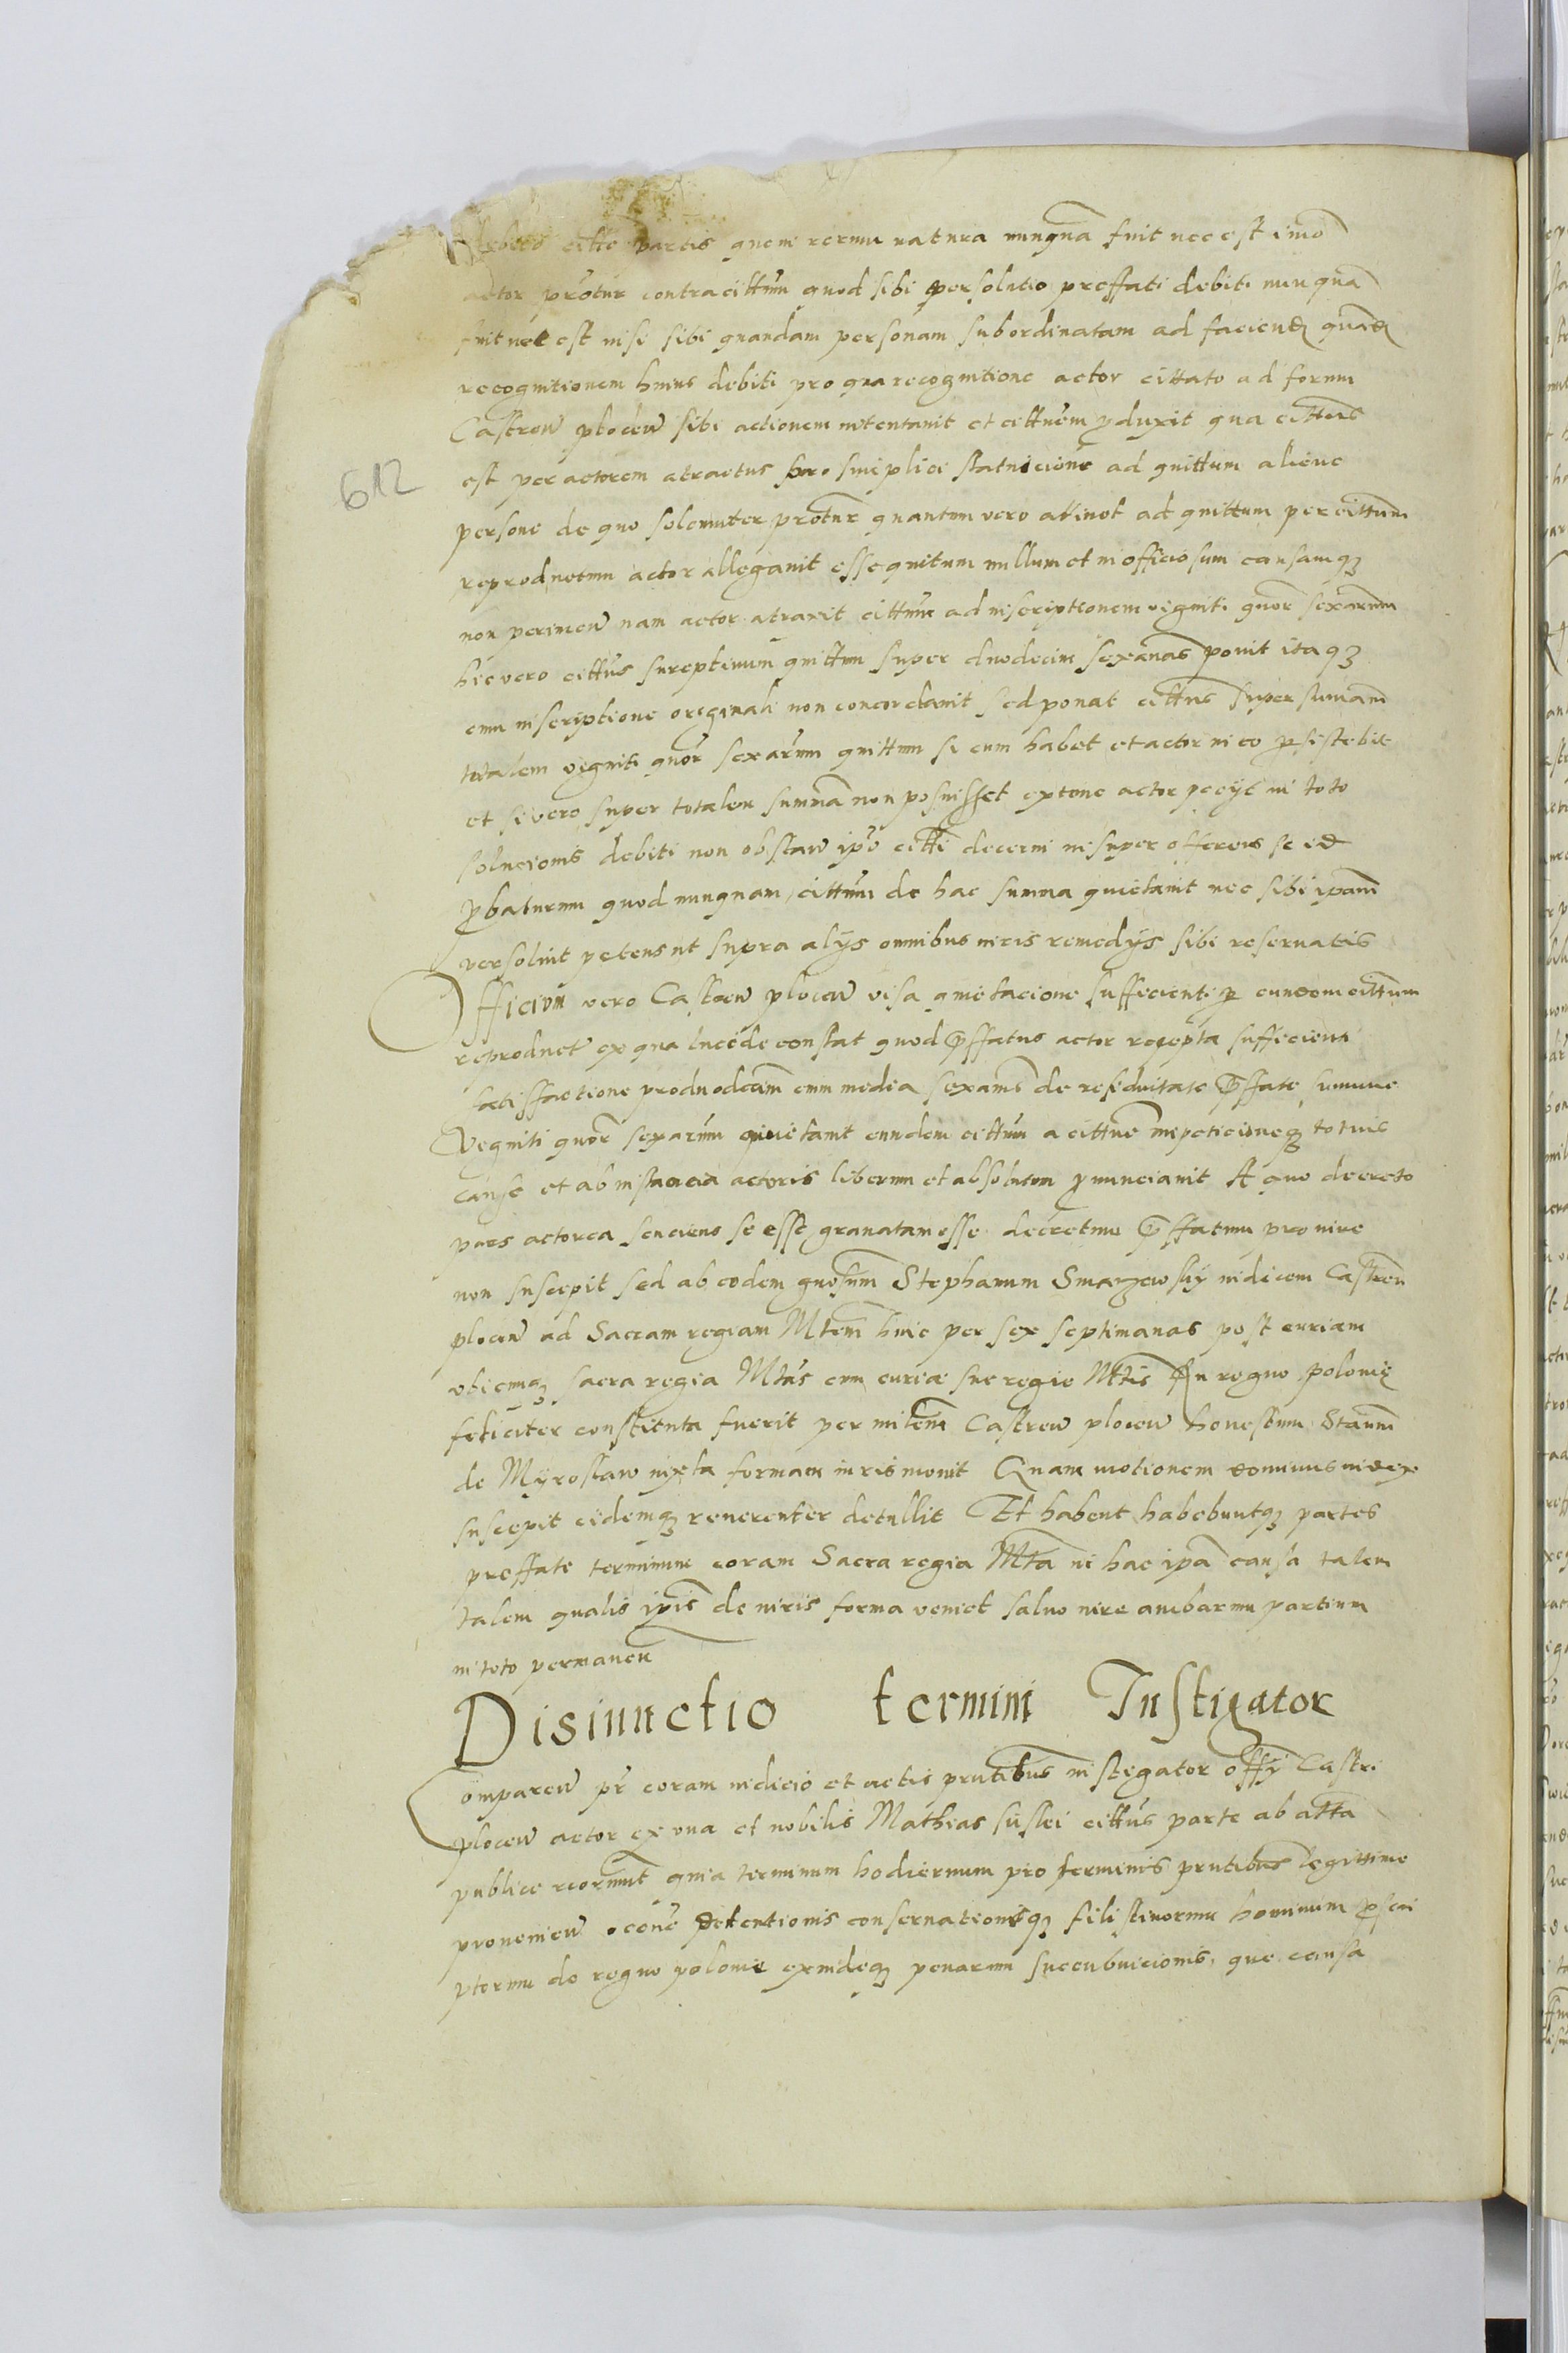 debito citto partis quem rerum natura nunquā fuit nec est imo
actor prōtur contra cittum quod sibi persolutio preffati debiti nunquā
fuit nec est nisi sibi quandam personam subordinatam ad faciend quand
recognitionem huius debiti pro qua recognitione actor cittato ad forum
Castren plocen sibi actionem intentauit et cittuem pduxit qua cittus
est per actorem atractus pro simplici statuicione ad quittum aliene
persone de quo solemniter protur quantum vero attinet ad quittum per cittum
reproductum actor allegauit esse quitum nullum et inofficiosum causamq3
non perimen nam actor atraxit cittum ad inscriptionem viginti quor sexarum
hic vero cittus sureptiuum quittum super duodecim sexanas ponit itaq3
cum inscriptione originali non concordauit Sed ponat cittus super sumam
totalem viginti quor sexarum quittum si eum habet et actor in eo psistebit
et si vero super totalem sumna non posuisset extunc actor peeyt in toto
solucionis debiti non obstan ipo citti decerni insuper offerens se id
pbaturum quod nunquam cittum de hac summa quietauit nec sibi ipam
persoluit petens ut supra alys omnibus iuris remedys sibi reseruatis
Officium vero Castren plocen visa quietacione sufficienti p eundem cittum
reproduct ex qua lucide constat quod pffatus actor recepta sufficienti
satisffactione pro duodecim cum media sexams de residuitate pffate summe
Veginti quor sexarum quietauit eundem cittum a cittue inpeticioneq3 totius
cause et ab instancia actoris liberum et absolutum pnunciauit A quo decreto
pars actorea senciens se esse grauatam esse decretum pffatum pro iure
non suscepit sed ab eodem gnosum Stephanum Smarzewsky iudicem Castren
plocen ad Sacram regiam Mtem hinc per sex septimanas post curiam
vbicunq3 sacra regia Mtas cum curia sue regie Mtis In regno polonie
feliciter constituta fuerit per milem Castren plocen honestum Stanm
de Myrostaw iuxta formam iuris mouit Quam motionem dominus iudex
suscepit eidemq3 reuerenter detullit Et habent habebuntq3 partes
preffate terminum coram Sacra regia Mta in hac ipa causa talem
talem qualis ipis de iuris forma veniet saluo iure ambarum partium
in toto permanen
Disiunctio termini Instigator
Comparen pr coram iudicio et actis pntibus instigator offy Castri
plocen actor ex vna et nobilis Mathias suski cittus parte ab atta
publice recormut quia terminum hodiernum pro terminis pntibus legittime
prouenien occne detentionis conseruationisq3 filistinorum hominum pscri
ptorum de regno polonie exindeq3 penarum succubuicionis que causa
612